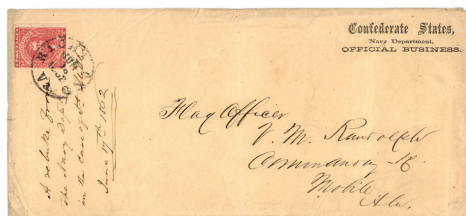 Confederate States,
Navy Department,
OFFICIAL BUSINESS.
RICHMOND VA
JUN
Flag Officer
V. M. Randolph
Commanding
Mobile
Ala.
A rebuke from
the Navy Dept
in the case of
June 17th 1862